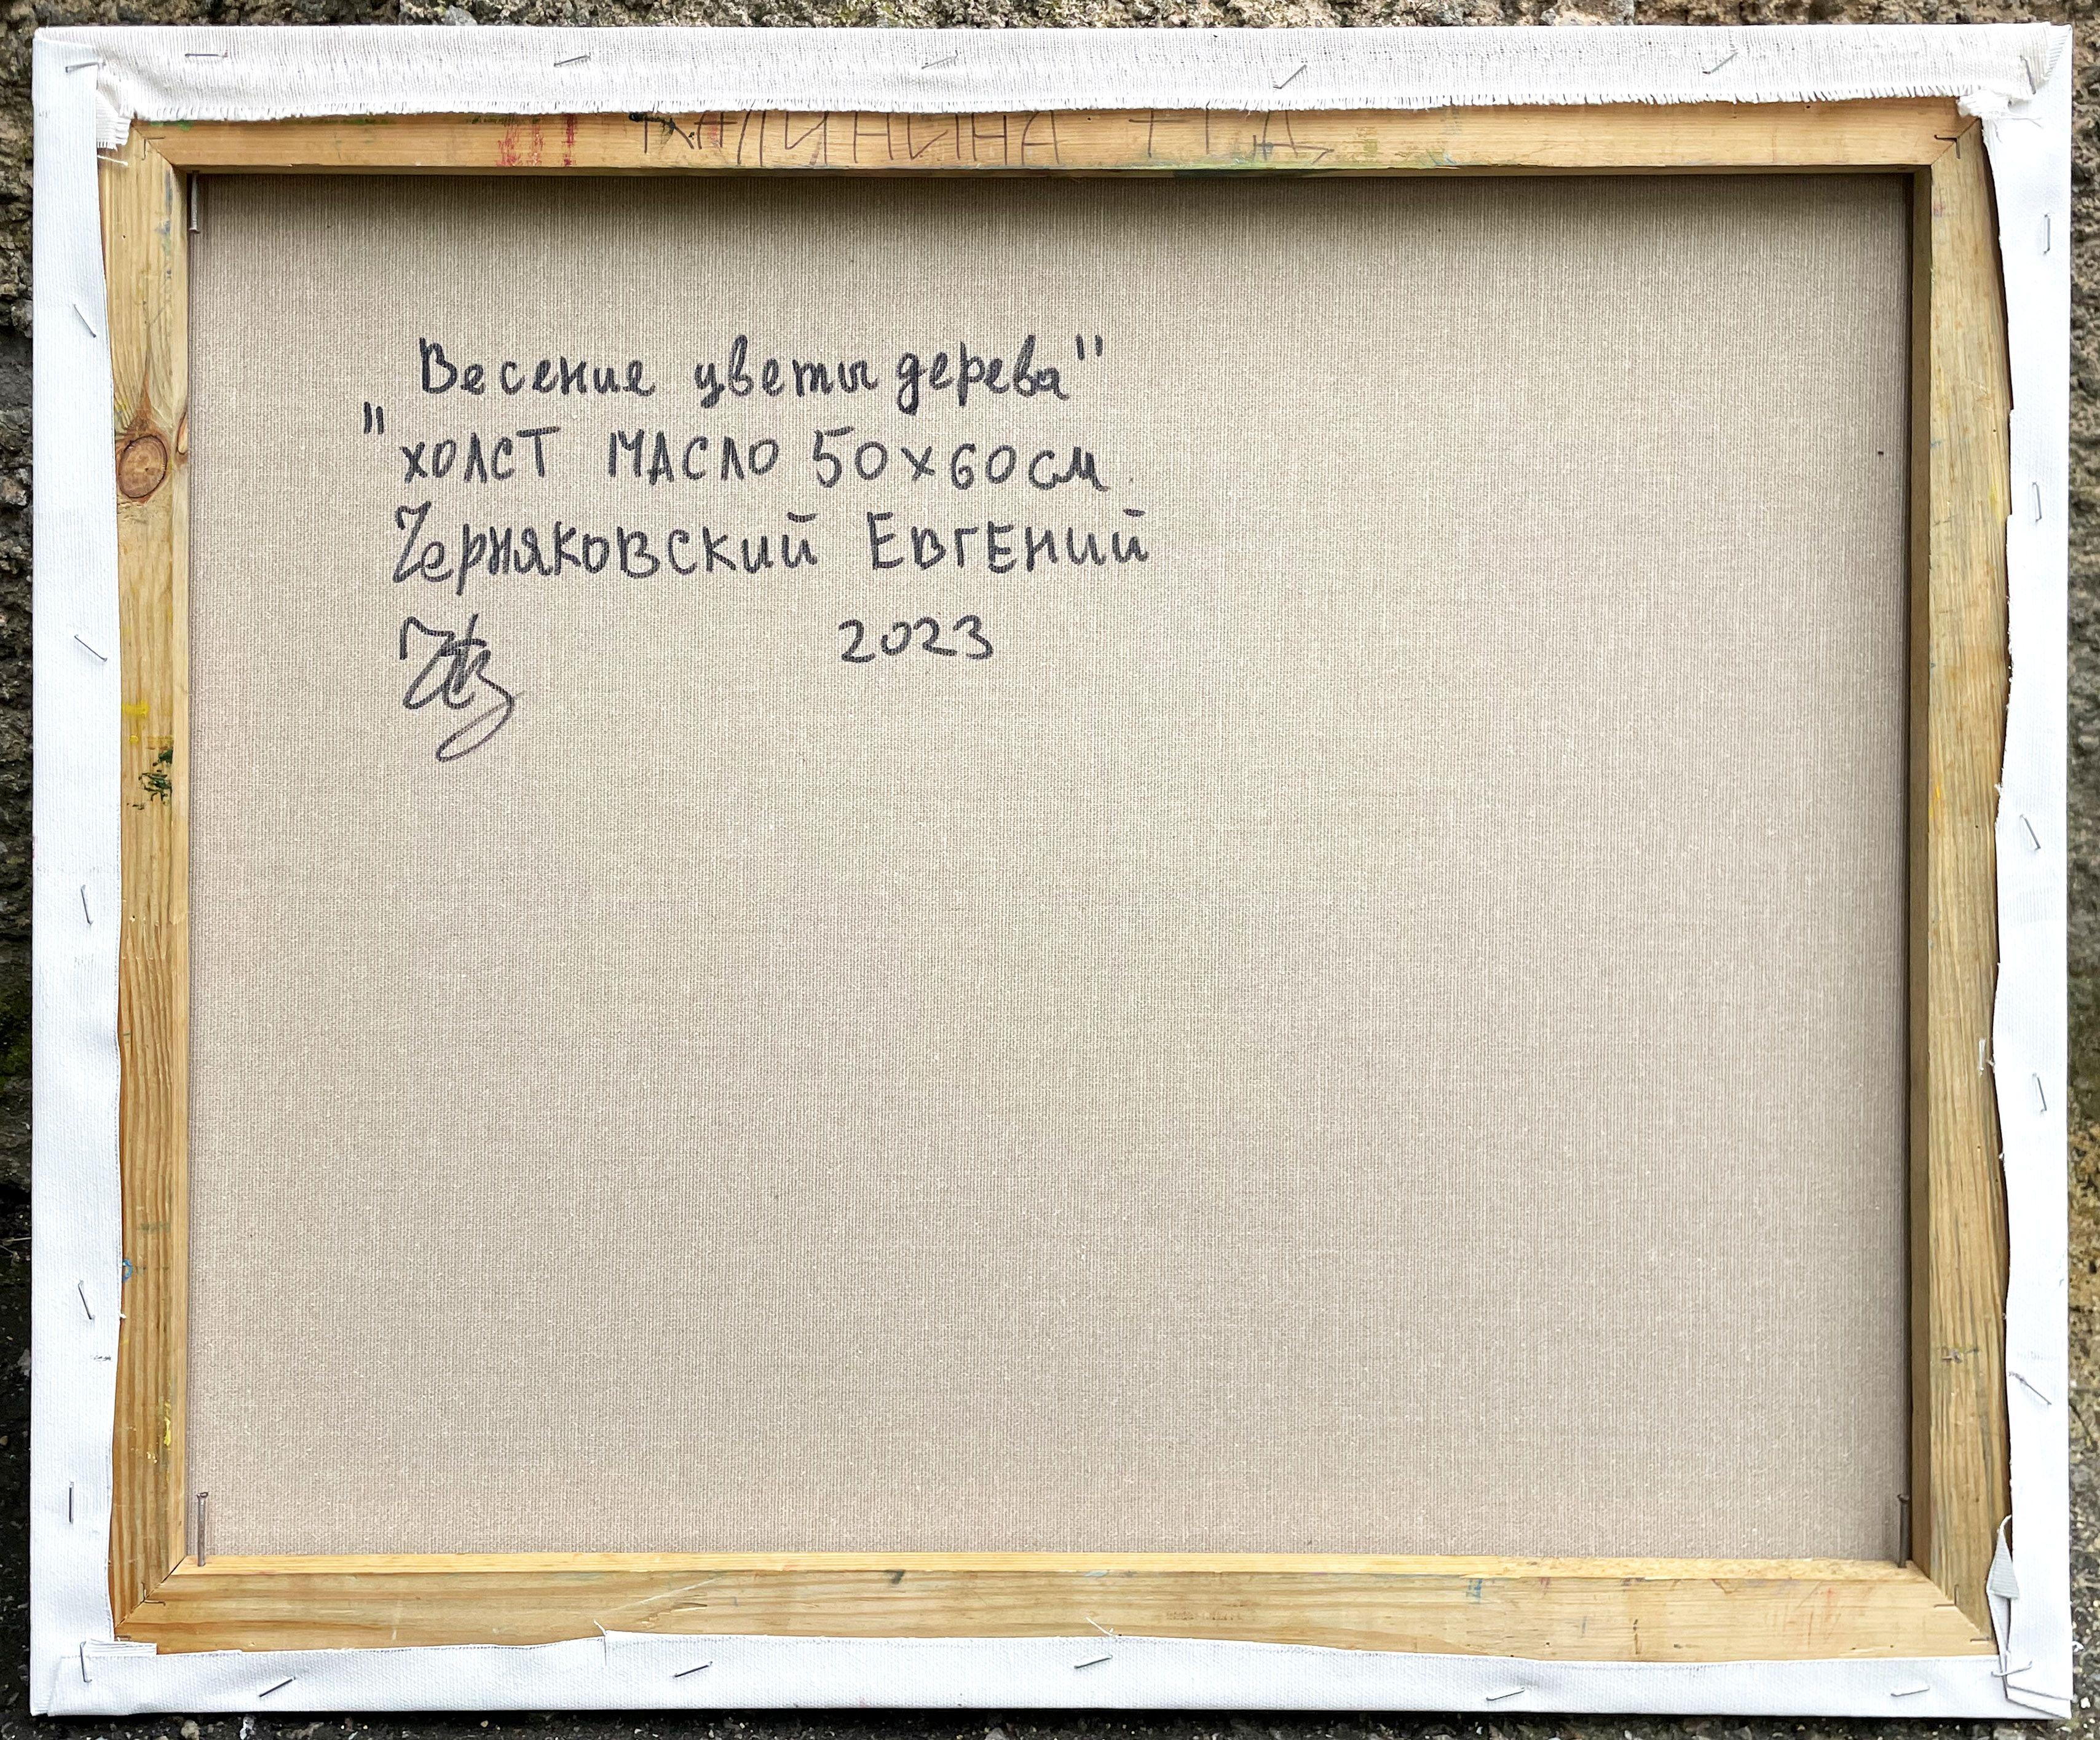 КАЛИНИНА
Весение цветы дерева"
"холст МАСЛО 50х60см.
Черняковский ЕВГЕНИЙ
2023